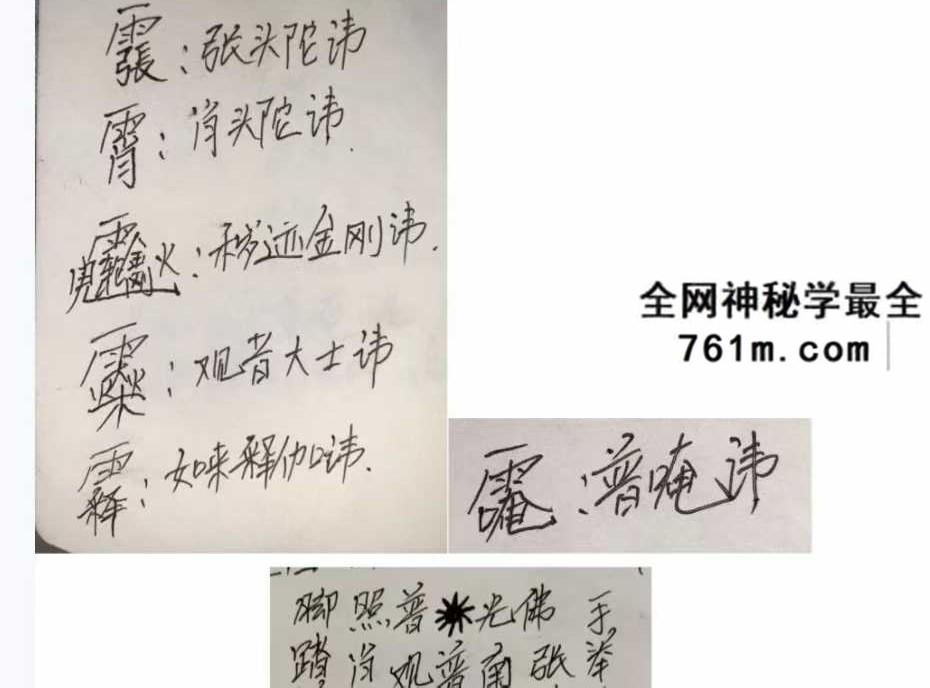 ：张头陀讳
：肖头陀讳.
：秽迹金刚讳.
：观音大士讳
：如来释伽讳.
全网神秘学最全
761m.com
：普唵讳
脚照普 光佛手
踏肖观普甬张举